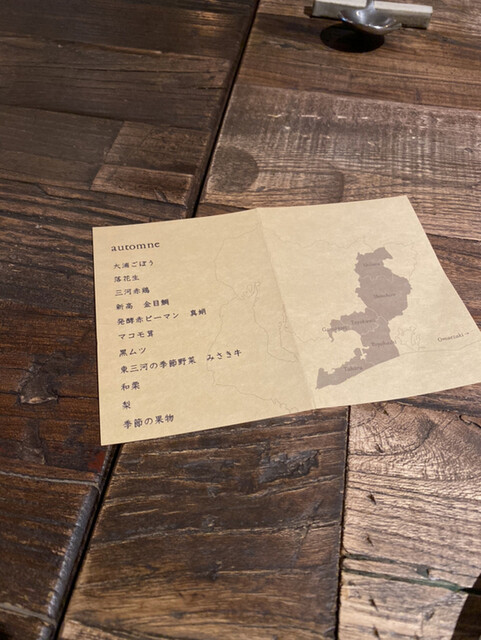 automne
大浦ごぼう
落花生
三河赤鶏
新高　金目鯛
発酵赤ピーマン　真蛸
マコモ茸
黒ムツ
東三河の季節野菜　みさき牛
和栗
梨
季節の果物
Omaezaki